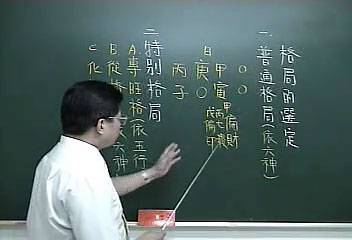 格局的選定
一.普通格局(依六神)
日
○甲庚丙
○寅○子
甲偏財
丙七殺
戊偏印
二.特別格局
A.專旺格(依五行
B.從格 六神
C化